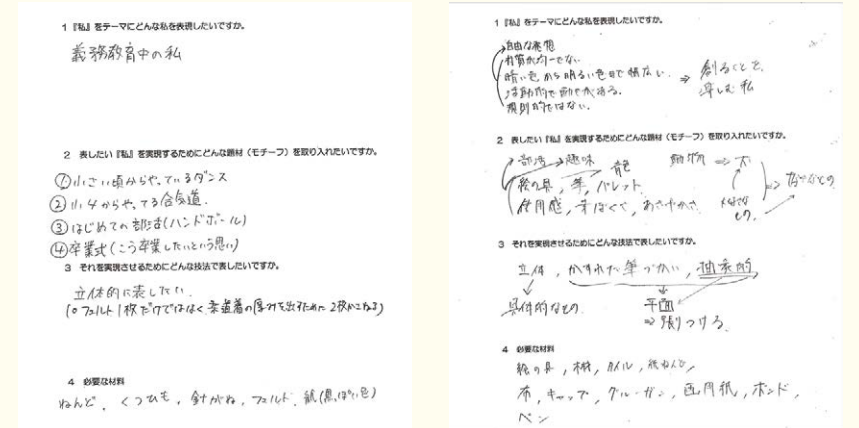 1 『私』をテーマにどんな私を表現したいですか。
義務教育中の私
2 表したい『私』を実現するためにどんな題材（モチーフ）を取り入れたいですか。
①小さい頃からやっているダンス
②小4からやってる合気道.
③はじめての部活(ハンドボール)
④卒業式(こう卒業したいという思い)
3 それを実現させるためにどんな技法で表したいですか。
立体的に表したい.
(○フェルト1枚だけではなく柔道着の厚みを出すために2枚かさねる)
4 必要な材料
ねんど、くつひも，針がね，フェルト、紙(黒っぽい色)
1 『私』をテーマにどんな私を表現したいですか。
自由な発想
均一でない
暗い色から明るい色まで幅広い
活動的で動きがある。
規則的ではない。
⇒ 創ることを、
楽しむ私
2 表したい『私』を実現するためにどんな題材（モチーフ）を取り入れたいですか。
部活→趣味
動物 ⇒ 犬
絵の具，筆，パレット
使用感，あざやかさ
大切なもの.
3 それを実現させるためにどんな技法で表したいですか。
立体，かすれた筆づかい，抽象的，
具体的なもの
平面
⇒張りつける.
4 必要な材料
絵の具，木材，タイル，紙ねんど，
布，キャップ，グルーガン，画用紙，ボンド，
ペン